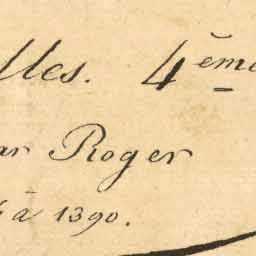 lles. 4ème
ar Roger
à 1390.